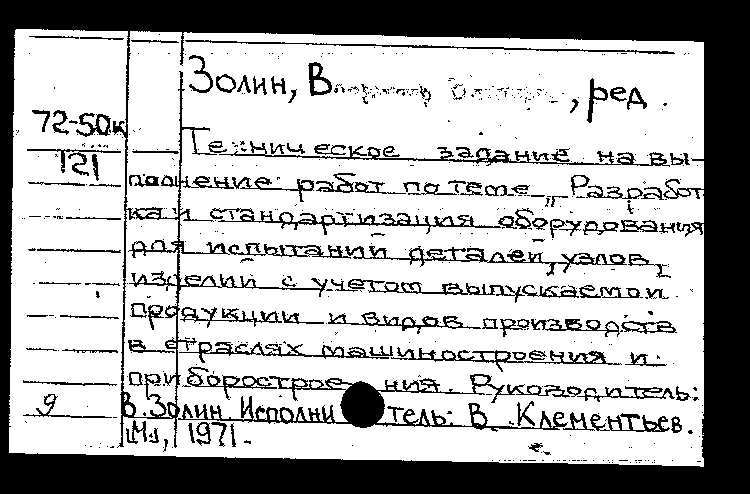 Золин, В , ред.
72-50к
121
Техническое задание на вы-
полнение работ по теме „Разработ
ка и стандартизация оборудования
для испытаний деталей, узлов,
изделий с учетом выпускаемой
продукции и видов производств
в отраслях машиностроения и
приборострое ния. Руководитель:
9 В. Золин. Исполни тель: В. Клементьев.
М., 1971.